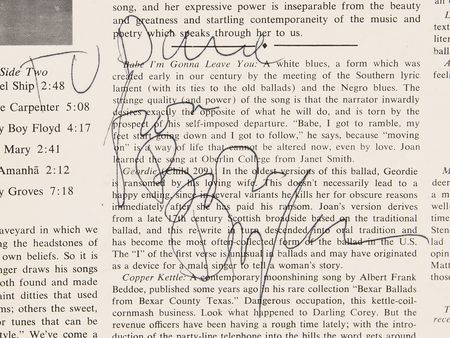 Side Two
el Ship 2:48
e Carpenter 5:08
y Boy Floyd 4:17
Mary 2:41
Amanhã 2:12
y Groves 7:18
aveyard in which we
ng the headstones of
own beliefs. So it is
nger draws his songs
oth found and made
aint ditties that used
ms; others the sweet,
or tunes that can be
tyle." We've come a
song, and her expressive power is inseparable from the beauty
and greatness and startling contemporaneity of the music and
poetry which speaks through her to us.
Babe I'm Gonna Leave You: A white blues, a form which was
created early in our century by the meeting of the Southern lyric
lament (with its ties to the old ballads) and the Negro blues. The
strange quality (and power) of the song is that the narrator inwardly
desires exactly the opposite of what he will do, and is torn by the
prospect of his self-imposed departure. "Babe, I got to ramble, my
feet start going down and I got to follow," he says, because "moving
on" is a way of life that cannot be altered now, even by love. Joan
learned the song at Oberlin College from Janet Smith.
Geordie (Child 209): In the oldest versions of this ballad, Geordie
is ransomed by his loving wife. This doesn't necessarily lead to a
happy ending since in several variants he kills her for obscure reasons
immediately after she has paid his ransom. Joan's version derives
from a late 17th century British broadside based on the traditional
ballad, and this rewrite again descended into oral tradition and
has become the most often found version of the ballad in the U.S.
The "I" of the first verse is in many ballads and may have originated
as a device for a male singer to tell a woman's story.
Copper Kettle: A contemporary moonshining song by Albert Frank
Beddoe, published some years ago in his rare collection "Bexar Ballads
from Bexar County Texas." Dangerous occupation, this kettle-coil-
cornmash business. Look what happened to Darling Corey. But the
revenue officers have been having a rough time lately; with the intro-
duction of the party-line telephone into the hills the word gets around
To
from
Bob Dylan